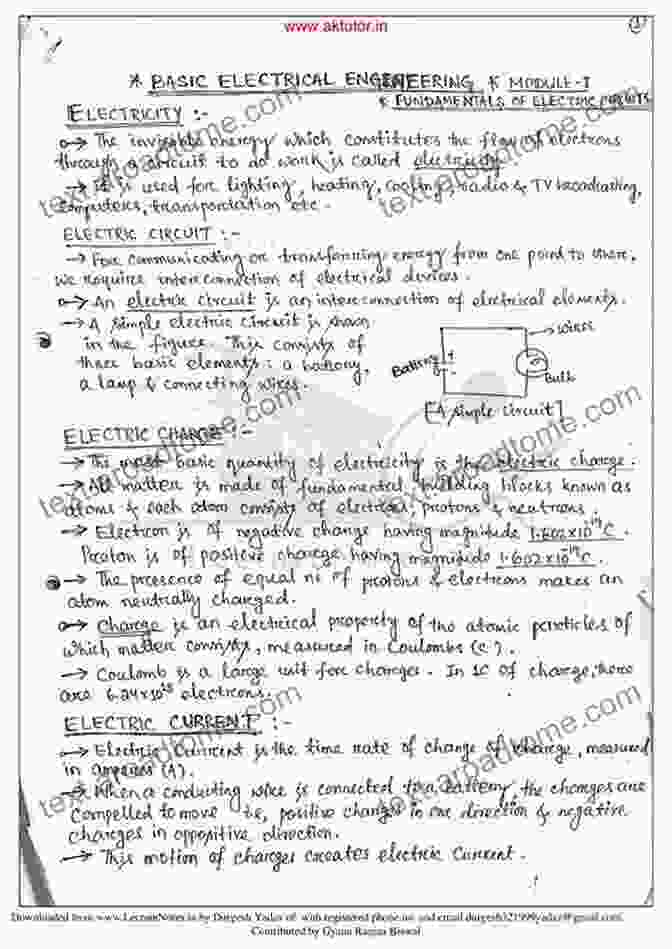 www.aktutor.in
1
* BASIC ELECTRICAL ENGINEERING * MODULE-I
* FUNDAMENTALS OF ELECTRIC CIRCUITS
ELECTRICITY :-
→ The invisible energy which constitutes the flow of electrons
through a circuit to do work is called electricity.
→ It is used for lighting, heating, cooling, radio & TV broadcasting,
computers, transportation etc.
ELECTRIC CIRCUIT :-
→ For communicating or transferring energy from one point to there,
we require interconnection of electrical devices.
→ An electric circuit is an interconnection of electrical elements.
→ A simple electric circuit is shown
in the figure. This consists of
three basic elements: a battery,
a lamp & connecting wires.
→ wires
Battery + -
Bulb
[A simple circuit]
ELECTRIC CHARGE :-
→ The most basic quantity of electricity is the electric charge.
→ All matter is made of fundamental building blocks known as
atoms & each atom consists of electrons, protons & neutrons.
→ Electron is of negative charge having magnitude 1.602×10⁻¹⁹C.
Proton is of positive charge having magnitude 1.602×10⁻¹⁹C.
→ The presence of equal no of protons & electrons makes an
atom neutrally charged.
→ Charge is an electrical property of the atomic particles of
which matter consists, measured in Coulombs (C).
→ Coulomb is a large unit for charges. In 1C of charge, there
are 6.24×10¹⁸ electrons.
ELECTRIC CURRENT :-
→ Electric Current is the time rate of change of charge, measured
in amperes (A).
→ When a conducting wire is connected to a battery, the charges are
compelled to move i.e, positive charges in one direction & negative
charges in oppositive direction.
→ This motion of charges creates electric current.
text.aroadtome.com
text.aroadtome.com
text.aroadtome.com
text.aroadtome.com
text.aroadtome.com
text.aroadtome.com
Downloaded from www.LectureNotes.in by Durgesh Yadav of with registered phone no and email
Contributed by Gyana Ranjan Biswal